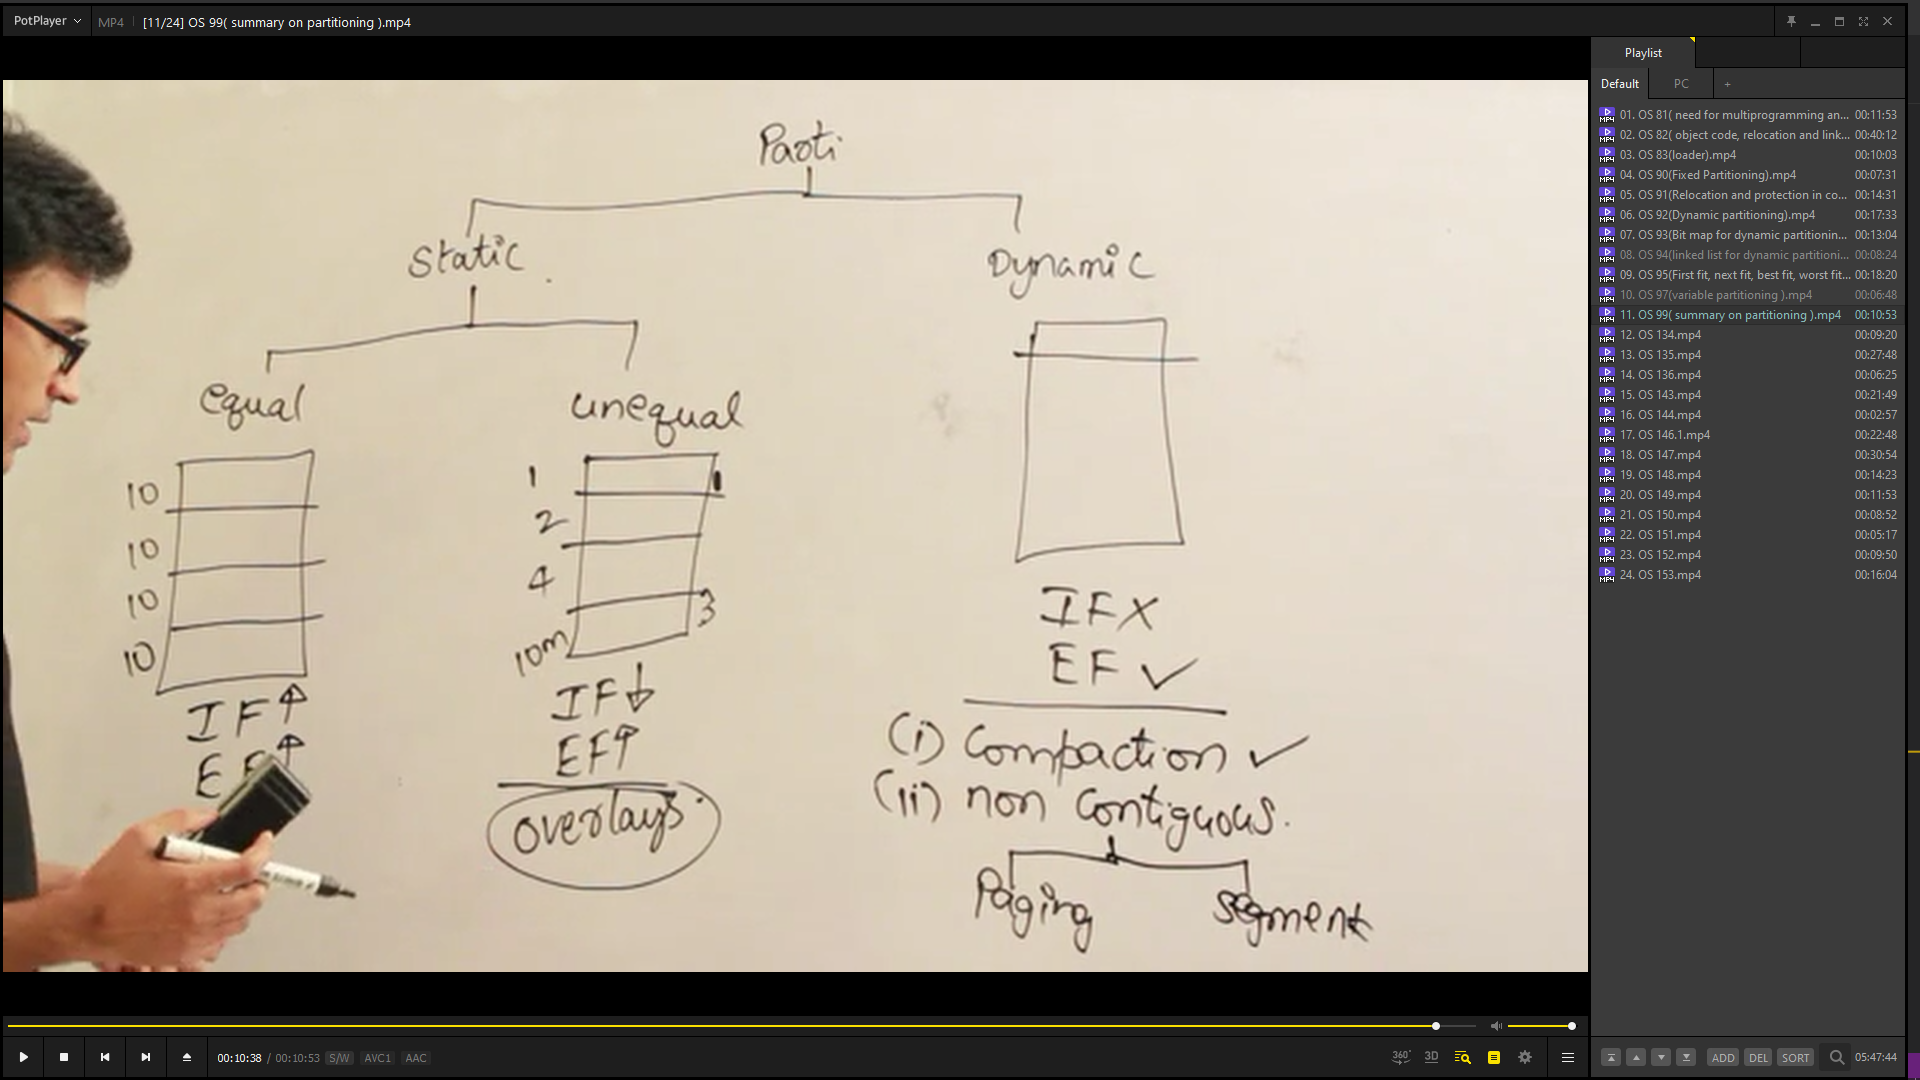 PotPlayer
MP4
[11/24] OS 99( summary on partitioning ).mp4
Parti
Static
Dynamic
equal
unequal
10
10
10
10
IF↑
EF↑
1
1
2
4
3
10m
IF↓
EF↑
overlays
IF X
EF ✓
(i) Compaction ✓
(ii) non contiguous.
Paging
Segment
00:10:38 / 00:10:53
S/W
AVC1
AAC
360°
3D
Playlist
Default
PC
+
01. OS 81( need for multiprogramming an... 00:11:53
02. OS 82( object code, relocation and link... 00:40:12
03. OS 83(loader).mp4 00:10:03
04. OS 90(Fixed Partitioning).mp4 00:07:31
05. OS 91(Relocation and protection in co... 00:14:31
06. OS 92(Dynamic partitioning).mp4 00:17:33
07. OS 93(Bit map for dynamic partitionin... 00:13:04
08. OS 94(linked list for dynamic partitioni... 00:08:24
09. OS 95(First fit, next fit, best fit, worst fit... 00:18:20
10. OS 97(variable partitioning ).mp4 00:06:48
11. OS 99( summary on partitioning ).mp4 00:10:53
12. OS 134.mp4 00:09:20
13. OS 135.mp4 00:27:48
14. OS 136.mp4 00:06:25
15. OS 143.mp4 00:21:49
16. OS 144.mp4 00:02:57
17. OS 146.1.mp4 00:22:48
18. OS 147.mp4 00:30:54
19. OS 148.mp4 00:14:23
20. OS 149.mp4 00:11:53
21. OS 150.mp4 00:08:52
22. OS 151.mp4 00:05:17
23. OS 152.mp4 00:09:50
24. OS 153.mp4 00:16:04
ADD
DEL
SORT
05:47:44